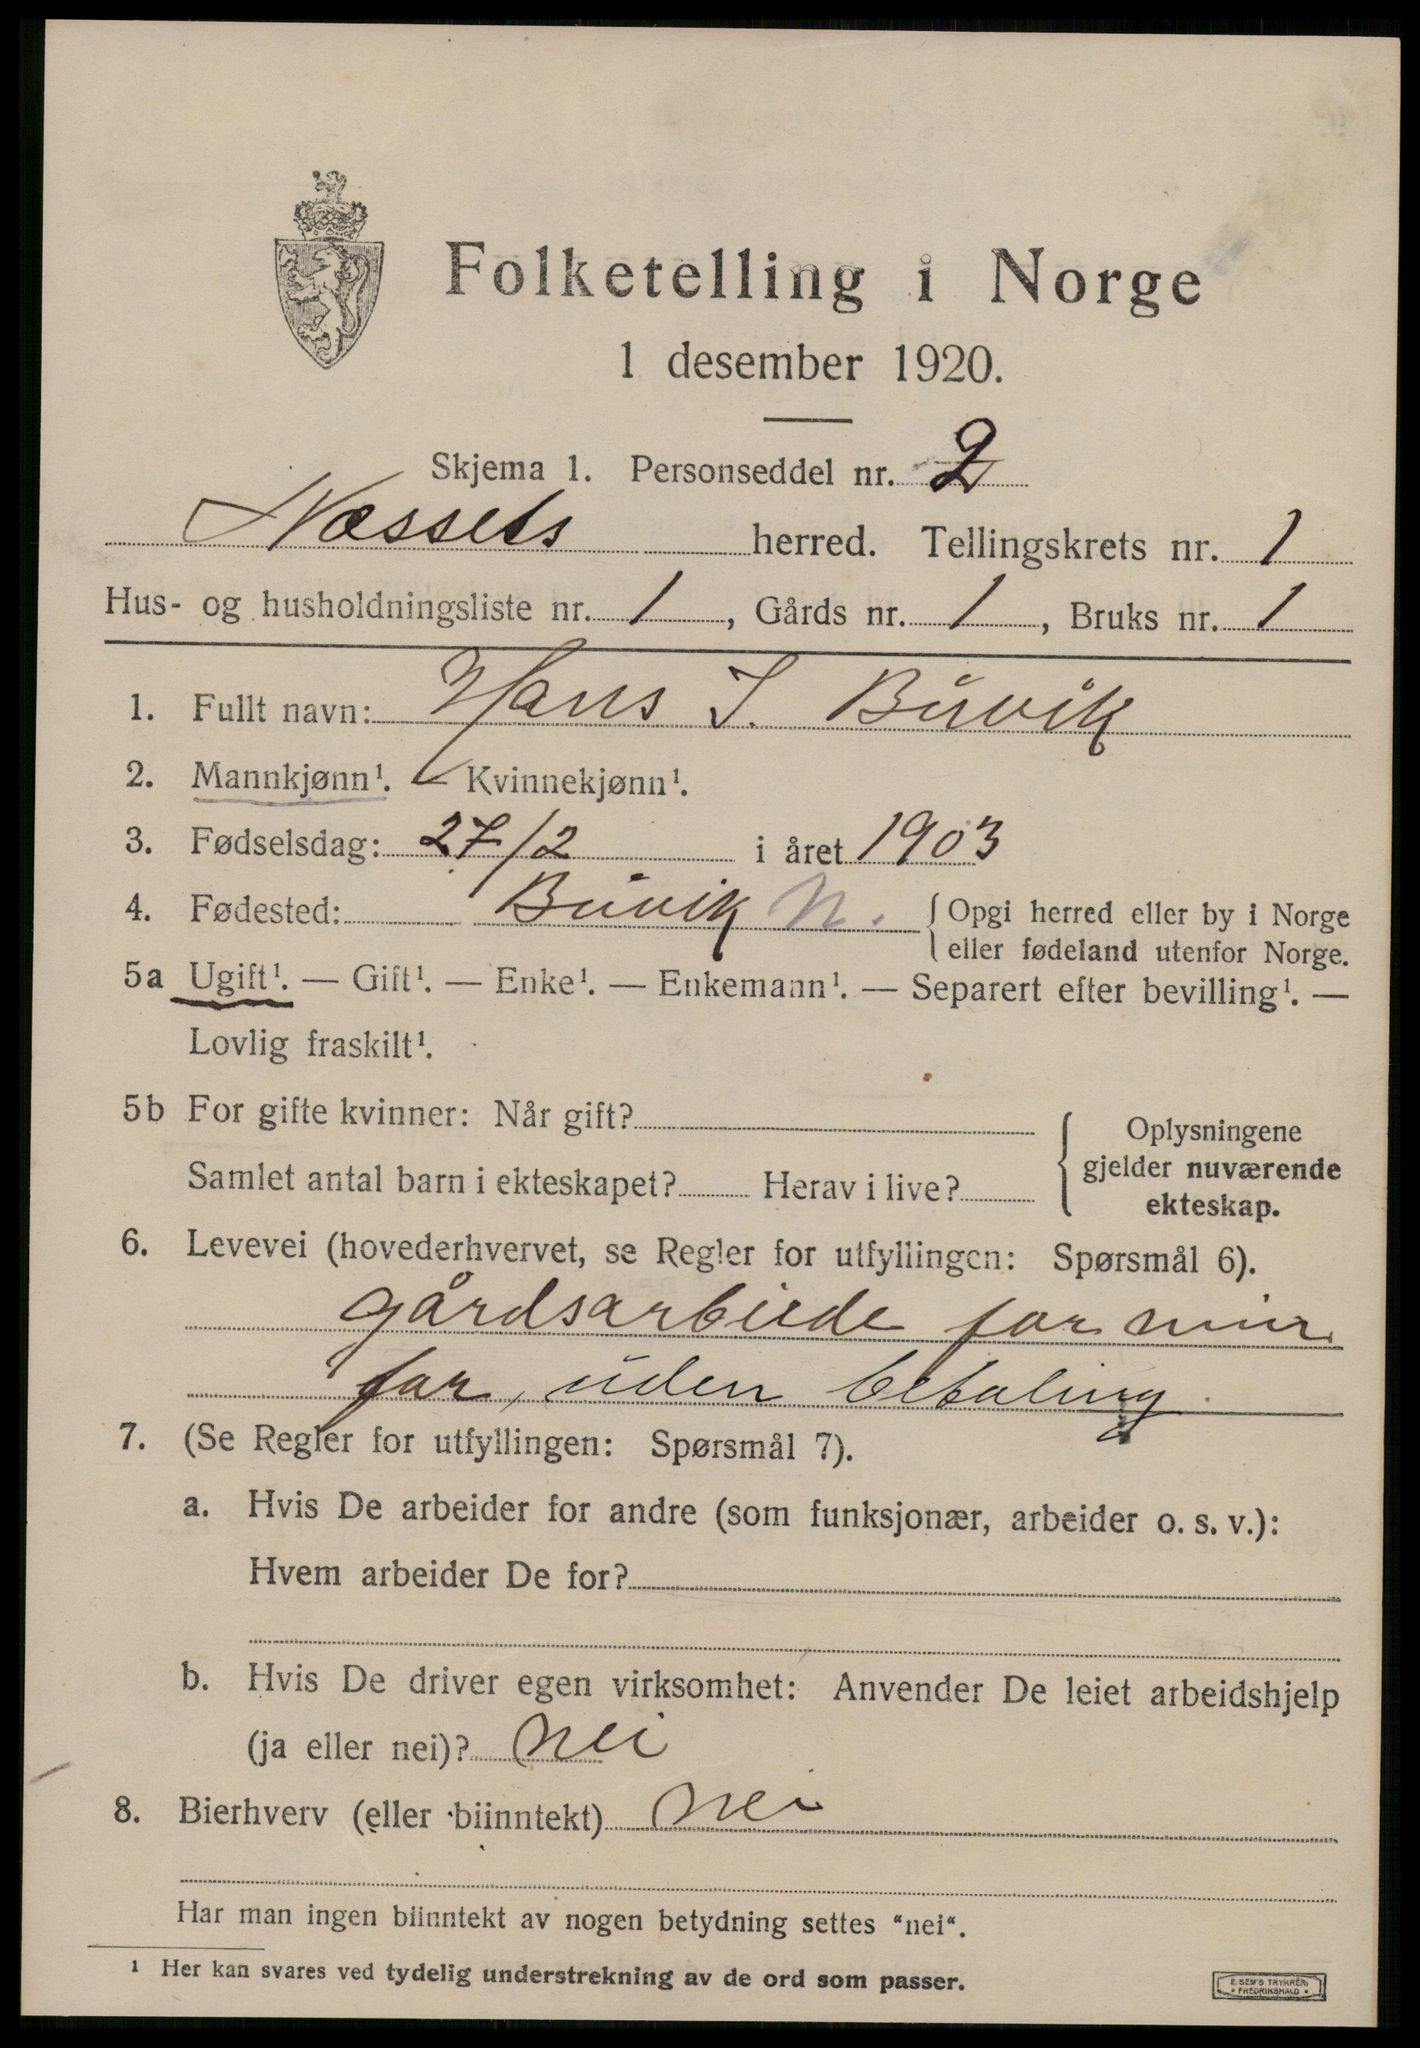 Folketelling i Norge
1 desember 1920.
Skjema 1. Personseddel nr. 2
Næssets herred. Tellingskrets nr. 1
Hus- og husholdningsliste nr. 1, Gårds nr. 1, Bruks nr. 1
1. Fullt navn: Hans J. Buvik
2. Mannkjønn¹. — Kvinnekjønn¹.
3. Fødselsdag: 27/2 i året 1903
4. Fødested: Buvik N. { Opgi herred eller by i Norge
eller fødeland utenfor Norge.
5a Ugift¹. — Gift¹. — Enke¹. — Enkemann¹. — Separert efter bevilling¹. —
Lovlig fraskilt¹.
5b For gifte kvinner: Når gift?
Samlet antal barn i ekteskapet? Herav i live?
{ Oplysningene
gjelder nuværende
ekteskap.
6. Levevei (hovederhvervet, se Regler for utfyllingen: Spørsmål 6).
gårdsarbeide for min
far, uden betaling
7. (Se Regler for utfyllingen: Spørsmål 7).
a. Hvis De arbeider for andre (som funksjonær, arbeider o. s. v.):
Hvem arbeider De for?
b. Hvis De driver egen virksomhet: Anvender De leiet arbeidshjelp
(ja eller nei)? nei
8. Bierhverv (eller biinntekt) nei
Har man ingen biinntekt av nogen betydning settes "nei".
¹ Her kan svares ved tydelig understrekning av de ord som passer.
E. SEM'S TRYKKERI
FREDRIKSHALD